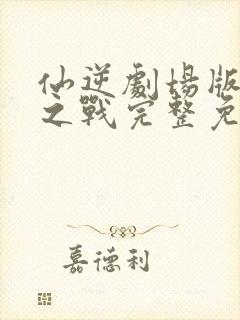 仙逆劇場版
之戰完整免
嘉德利